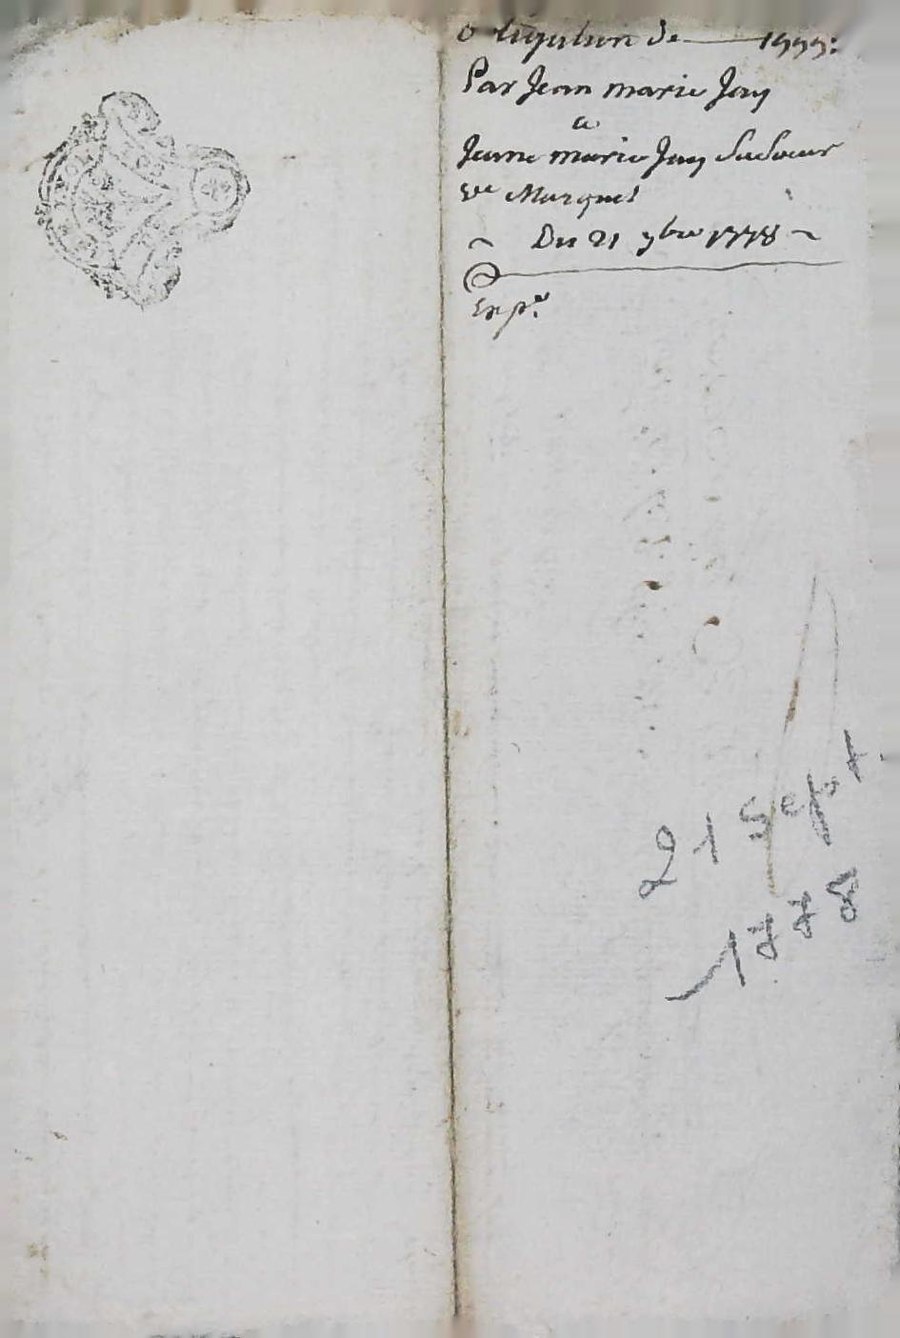 obligation de — 1999:
Par Jean marie Jay
a
Jeanne marie Jay Sa Soeur
ve Marquet
~ Du 21 7bre 1778 ~
Exp.
21 Sept.
1778